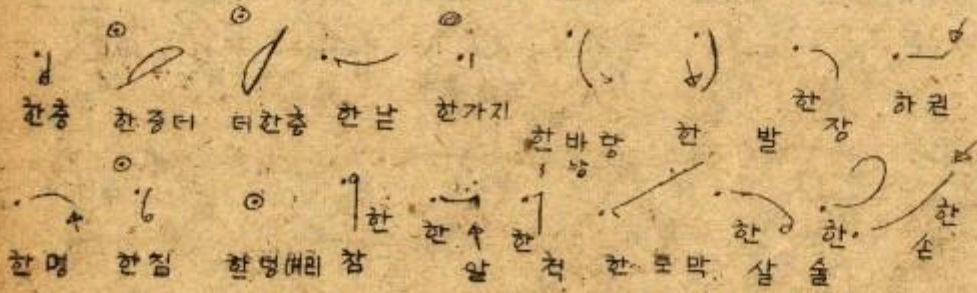 한층 한층더 더한층 한낱 한가지 한바탕 한발 한장 하권
한명 한짐 한덩어리 한참 한알 한척 한토막 한살 한술 한손